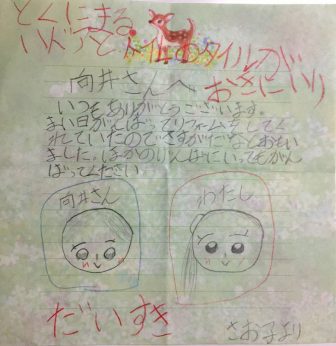 とくに まる
いドアと トイレのタイルが
おきにいり
向井さんへ
いつもありがとうございます。
まい日がんばってリフォームをしてく
れていたのですがたなとおもい
ました。ほかのげんばにいってもがん
ばってください
向井さん
わたし
だいすき
さお子より